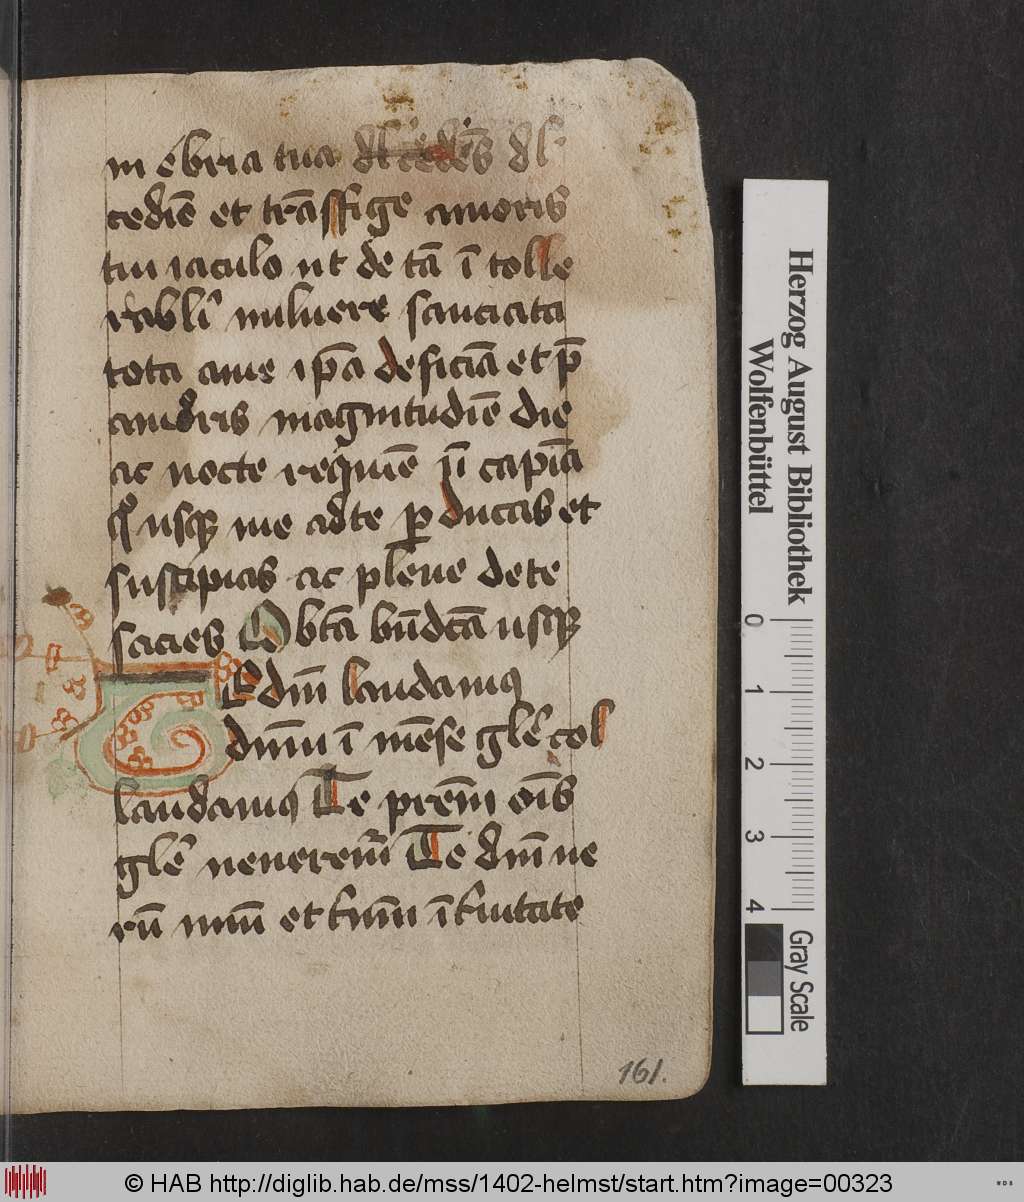 m ebria tua
cedīe et trāsfige amoris
tui iaculo ut de tā ī tolle
rabli vulnere sauciata
tota ame ip̄a deficiā et p̄
amoris magnitudīe die
ac nocte requiē n̄ capiā
usq me ad te ꝑducas et
suscipias ac plene de te
sacies Obtā bn̄dcā usq
TEdm̄ laudamus
dnm̄ ī mēse gl'e col
laudamus Te prem̄ oīs
gl'e venerem̄ Te dm̄ ve
rū vnū et trinū ī trintate
161.
Herzog August Bibliothek
Wolfenbüttel
0 1 2 3 4
Gray Scale
© HAB http://diglib.hab.de/mss/1402-helmst/start.htm?image=00323